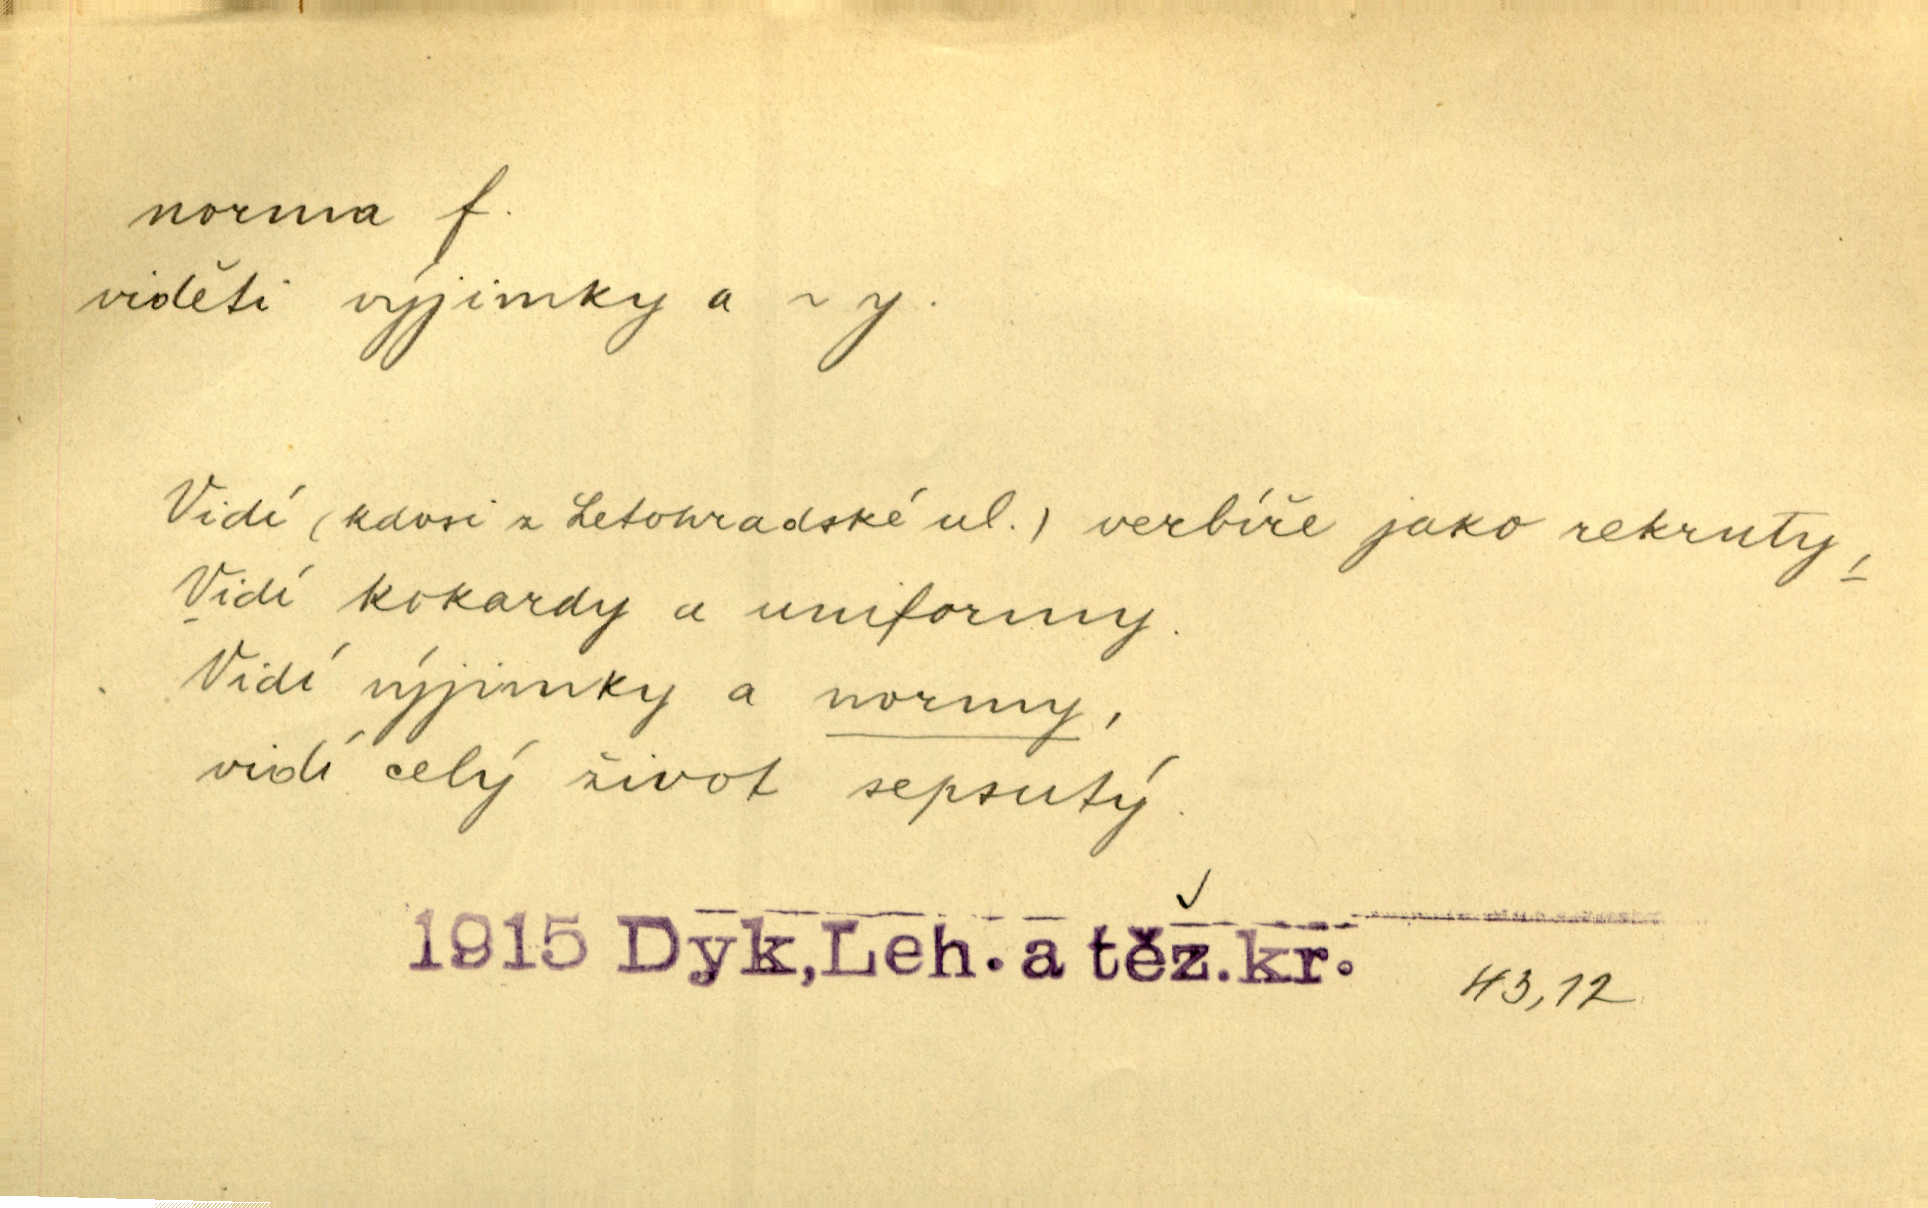 norma f.
viděti výjimky a ~y.
Vidí (kdosi z Letohradské ul.) verbíře jako rekruty,
Vidí kokardy a uniformy.
Vidí výjimky a normy,
vidí celý život sepsutý.
1915 Dyk, Leh. a těž. kr.
43,12